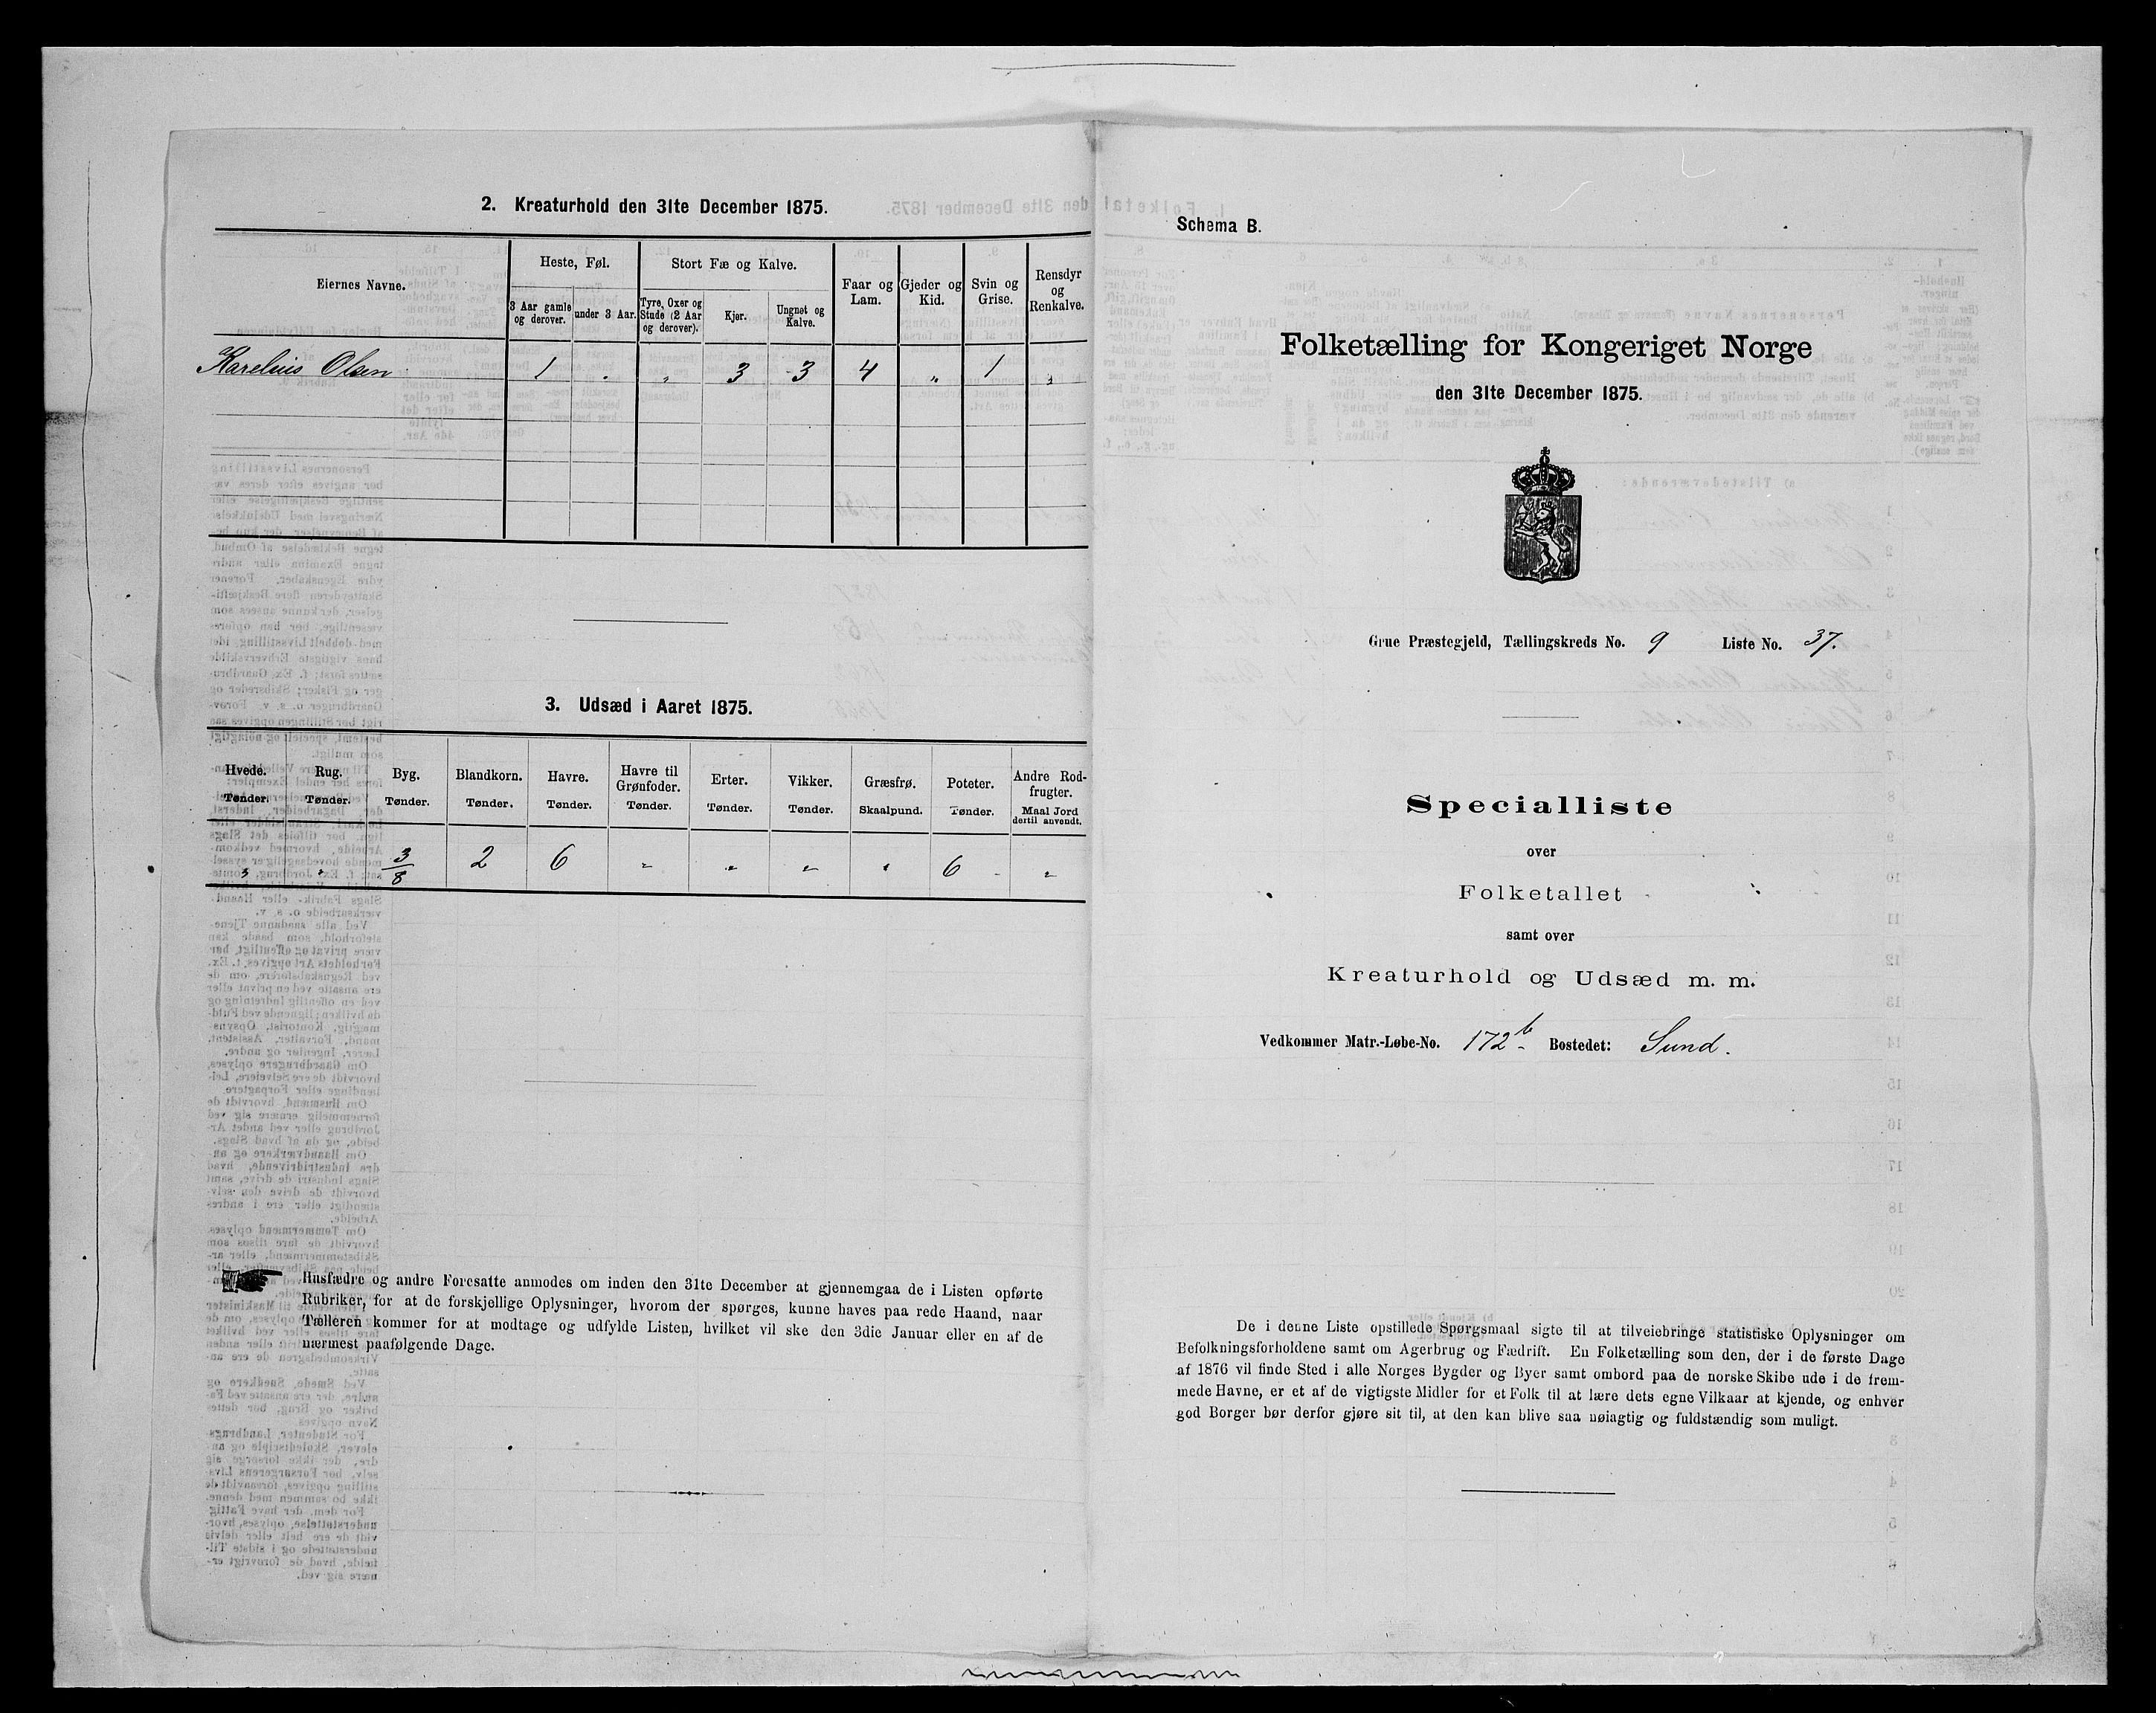 2. Kreaturhold den 31te December 1875.
Eiernes Navne.
Heste, Føl.
3 Aar gamle og derover.
under 3 Aar.
Stort Fæ og Kalve.
Tyre, Oxer og Stude (2 Aar og derover).
Kjør.
Ungnøt og Kalve.
Faar og Lam.
Gjeder og Kid.
Svin og Grise.
Rensdyr og Renkalve.
Karelius Olsen 1 . „ 3 3 4 „ 1 „
3. Udsæd i Aaret 1875.
Hvede. Tønder.
Rug. Tønder.
Byg. Tønder.
Blandkorn. Tønder.
Havre. Tønder.
Havre til Grønfoder. Tønder.
Erter. Tønder.
Vikker. Tønder.
Græsfrø. Skaalpund.
Poteter. Tønder.
Andre Rodfrugter. Maal Jord dertil anvendt.
„ „ 3/8 2 6 „ „ „ „ 6 „
Husfædre og andre Foresatte anmodes om inden den 31te December at gjennemgaa de i Listen opførte
Rubriker, for at de forskjellige Oplysninger, hvorom der spørges, kunne haves paa rede Haand, naar
Tælleren kommer for at modtage og udfylde Listen, hvilket vil ske den 3die Januar eller en af de
nærmest paafølgende Dage.
Schema B.
Folketælling for Kongeriget Norge
den 31te December 1875.
Grue Præstegjeld, Tællingskreds No. 9 Liste No. 37.
Specialliste
over
Folketallet
samt over
Kreaturhold og Udsæd m. m.
Vedkommer Matr.-Løbe-No. 172 b Bostedet: Sund.
De i denne Liste opstillede Spørgsmaal sigte til at tilveiebringe statistiske Oplysninger om
Befolkningsforholdene samt om Agerbrug og Fædrift. En Folketælling som den, der i de første Dage
af 1876 vil finde Sted i alle Norges Bygder og Byer samt ombord paa de norske Skibe ude i de frem-
mede Havne, er et af de vigtigste Midler for et Folk til at lære dets egne Vilkaar at kjende, og enhver
god Borger bør derfor gjøre sit til, at den kan blive saa nøiagtig og fuldstændig som muligt.